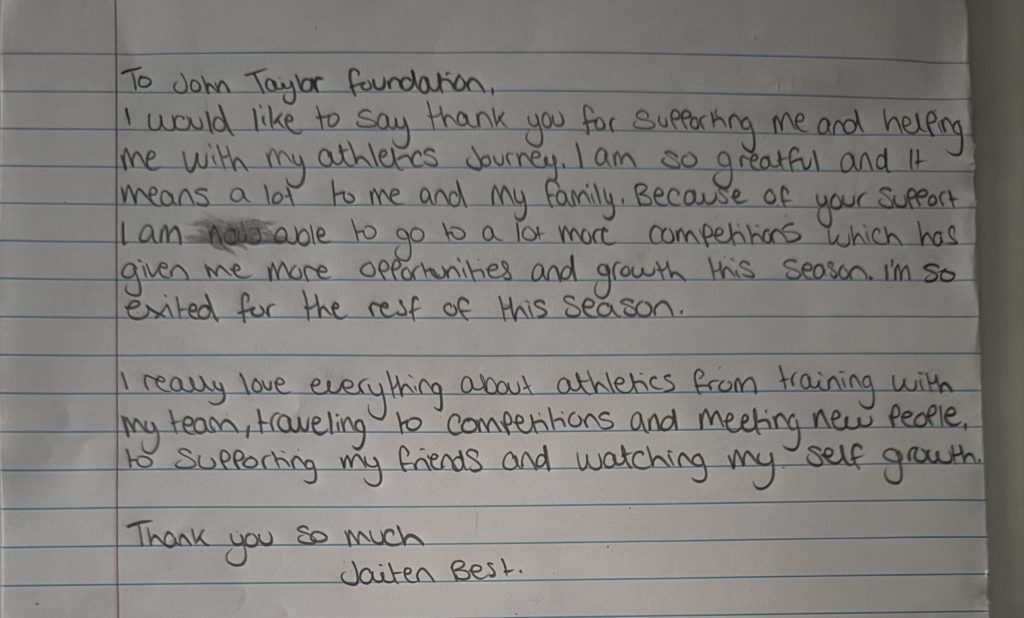 To John Taylor foundation,
I would like to say thank you for supporting me and helping
me with my athletics Journey. I am so greatful and It
means a lot to me and my family. Because of your support
I am able to go to a lot more competitions which has
given me more opportunities and growth this season. I'm so
exited for the rest of this season.
I really love everything about athletics from training with
my team, traveling to competitions and meeting new people,
to supporting my friends and watching my self growth.
Thank you so much
Jaiten Best.